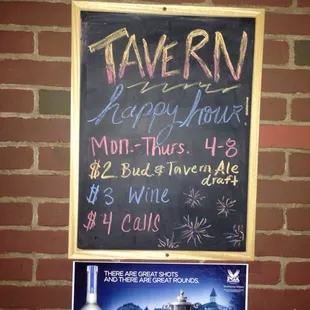 TAVERN
happy hour!
Mon.-Thurs. 4-8
$2 Bud & Tavern Ale
draft
$3 Wine
$4 Calls
THERE ARE GREAT SHOTS
AND THERE ARE GREAT ROUNDS.